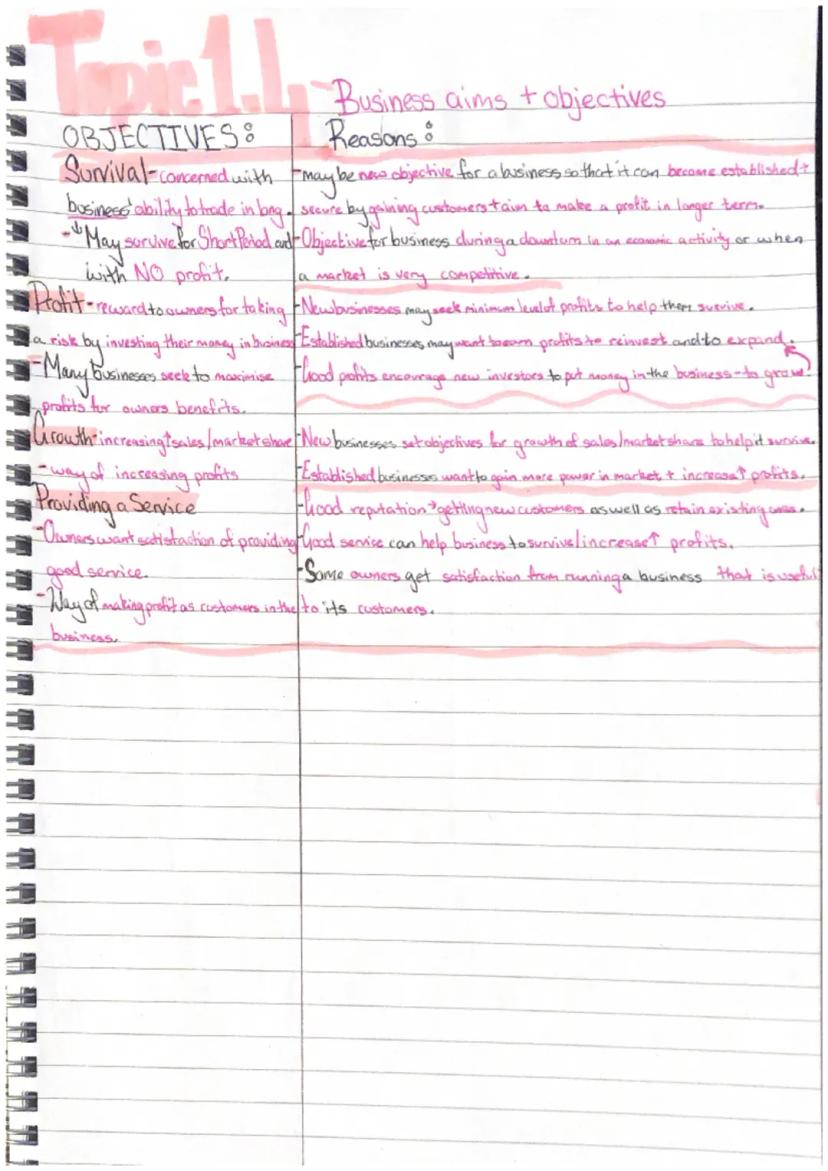 Topic 1.4 - Business aims + objectives
OBJECTIVES:
Survival - concerned with
business' ability to trade in long.
- ↓ May survive for Short Period and
with NO profit.
Profit - reward to owners for taking
a risk by investing their money in business
- Many businesses seek to maximise
profits for owners benefits.
Growth - increasing↑ sales/market share
- way of increasing profits
Providing a Service
- Owners want satisfaction of providing
good service.
- Way of making profit as customers in the
business.
Reasons:
- may be new objective for a business so that it can become established +
secure by gaining customers + aim to make a profit in longer term.
- Objective for business during a downturn in an economic activity or when
a market is very competitive.
- New businesses may seek minimum level of profits to help them survive.
- Established businesses may want to earn profits to reinvest and to expand.
- Good profits encourage new investors to put money in the business - to grow.
- New businesses set objectives for growth of sales/market share to help it survive.
- Established businesses want to gain more power in market + increase↑ profits.
- Good reputation → getting new customers as well as retain existing ones.
- Good service can help business to survive/increase↑ profits.
- Some owners get satisfaction from running a business that is useful
to its customers.